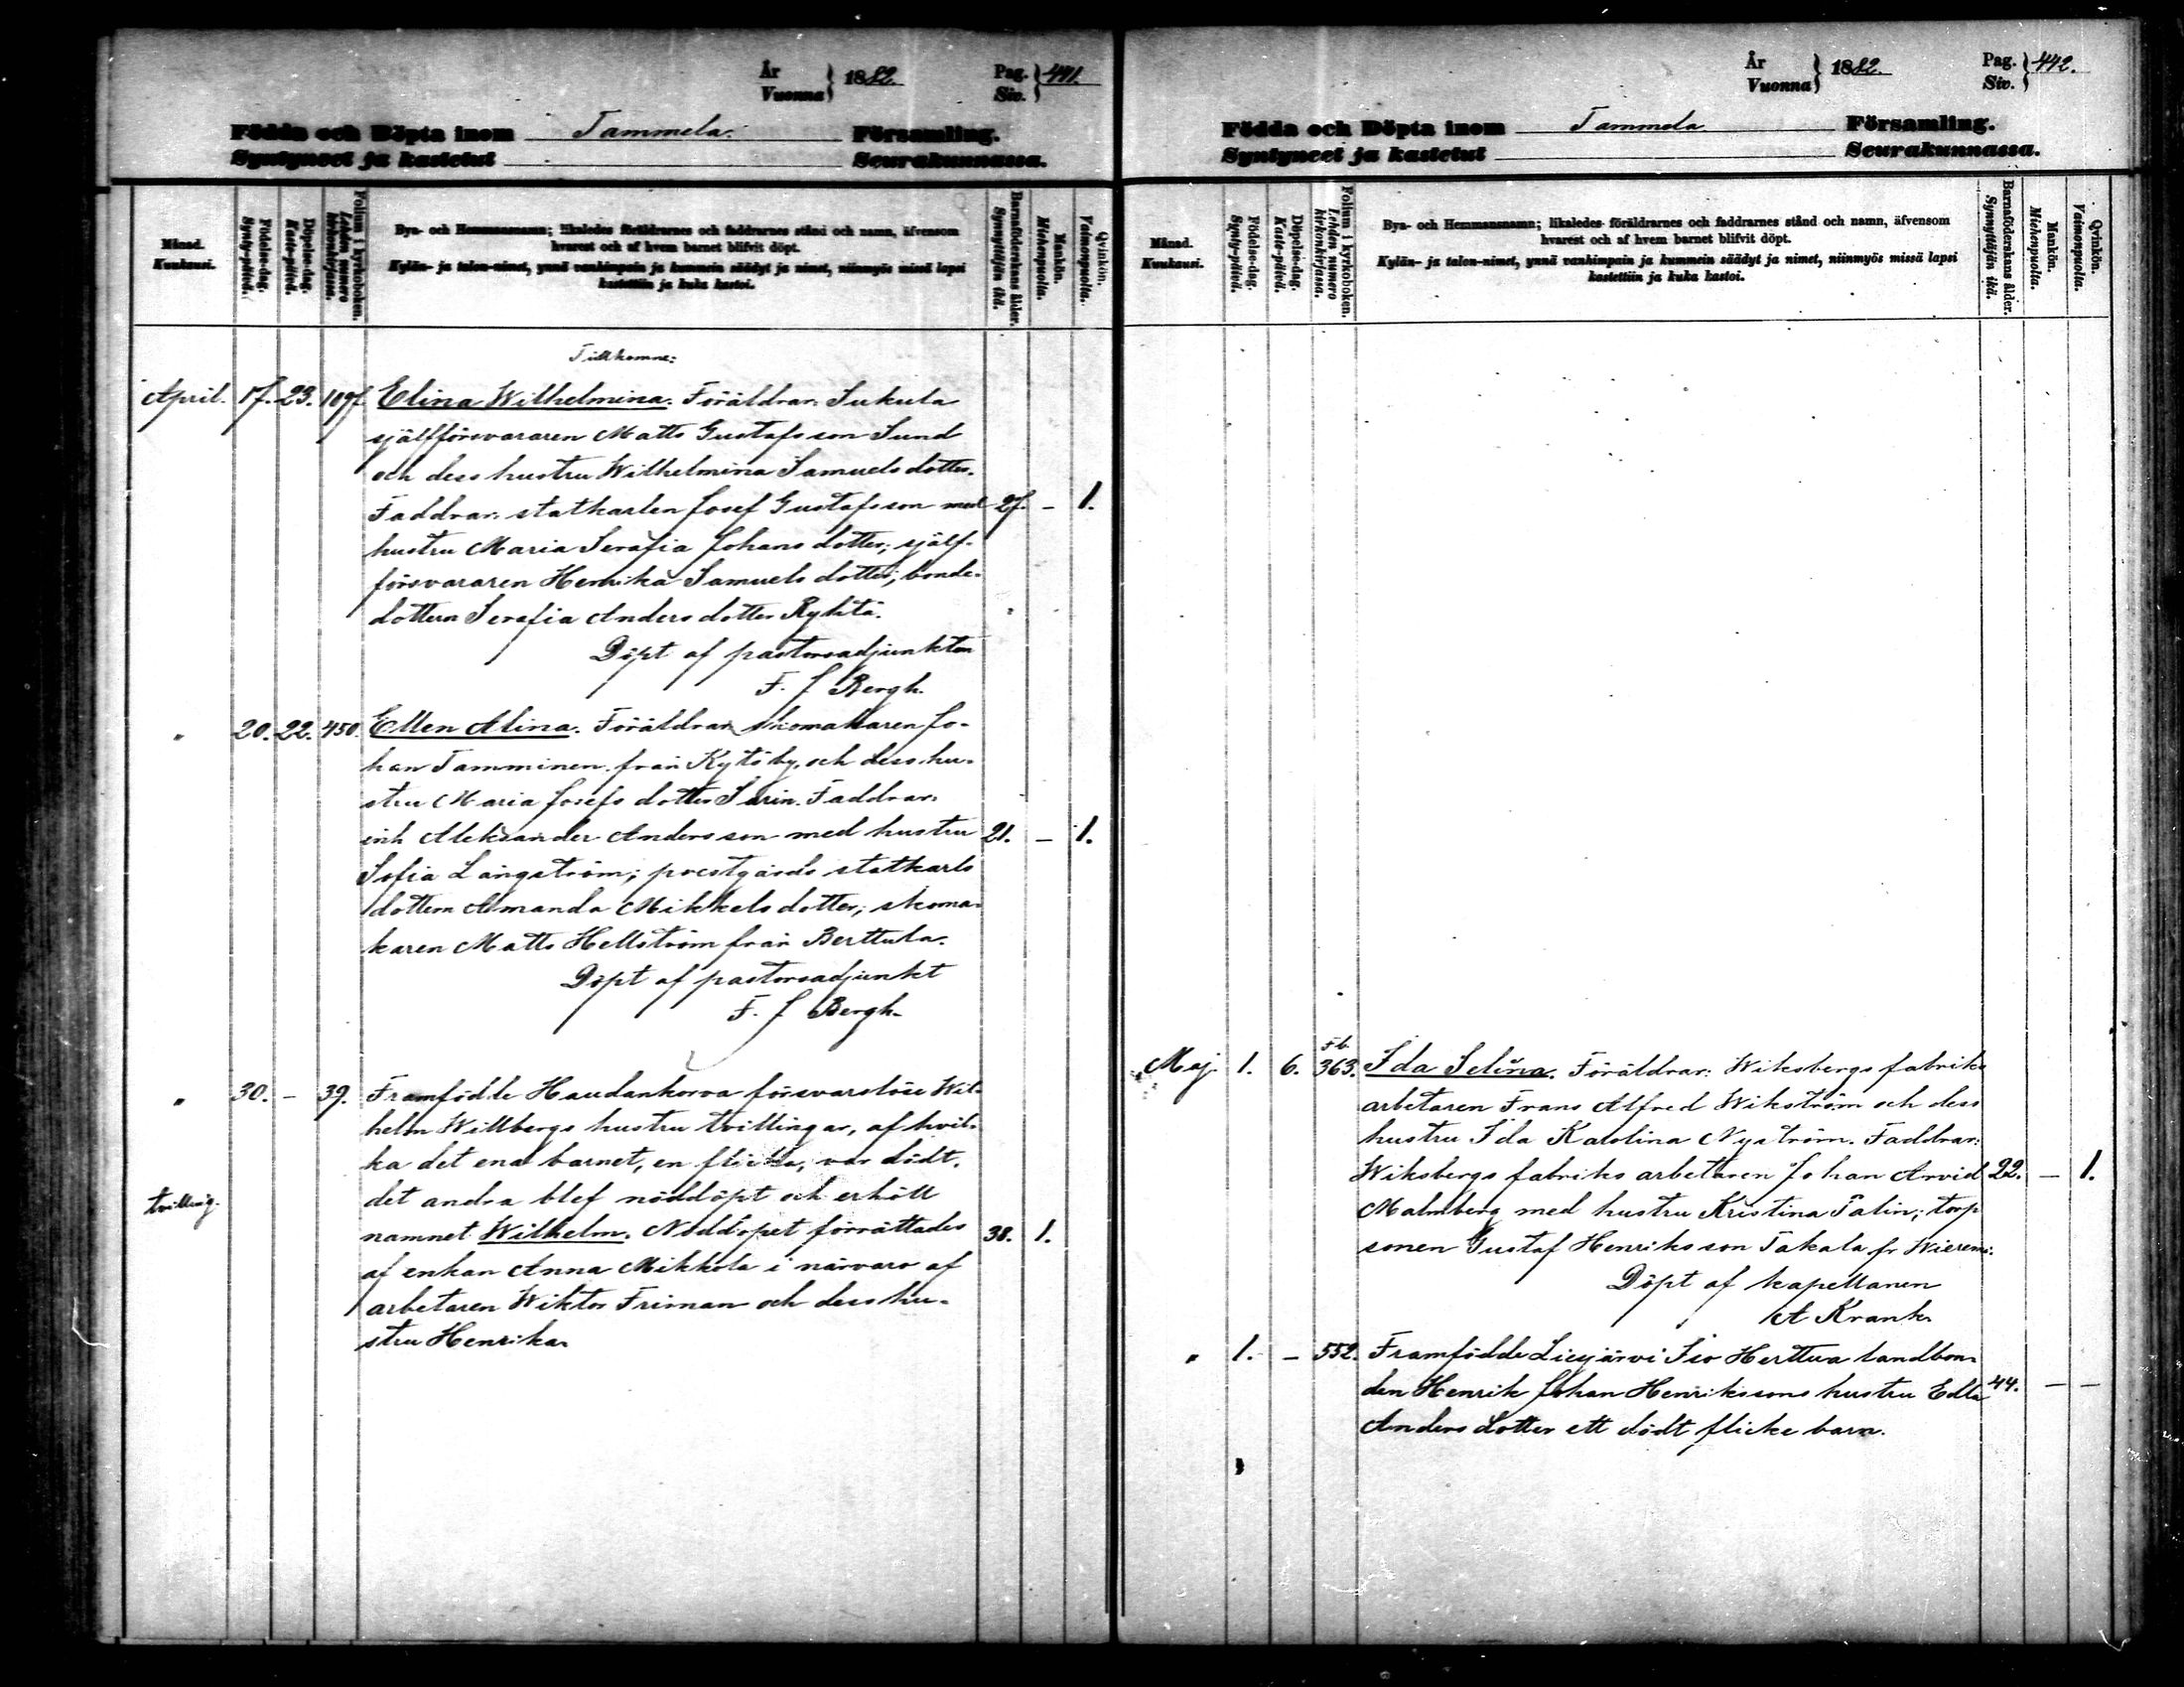 År
Vuonna } 1882.
Pag.
Siv. } 441.
Födda och Döpta inom Tammela. Församling.
Syntyneet ja kastetut Seurakunnassa.
Månad.
Kuukausi.
Födelse-dag.
Synty-päivä.
Döpelse-dag.
Kaste-päivä.
Folium i kyrkoboken.
Lehden numero kirkonkirjassa.
Bya- och Hemmansnamn; likaledes föräldrarnes och faddrarnes stånd och namn, äfvensom
hvarest och af hvem barnet blifvit döpt.
Kylän- ja talon-nimet, ynnä vanhimpain ja kummein säädyt ja nimet, niinmyös missä lapsi
kastettiin ja kuka kastoi.
Barnaföderskans ålder.
Synnyttäjän ikä.
Mankön.
Miehenpuolta.
Qvinkön.
Vaimonpuolta.
Tillkomne:
April. 17. 23. Elina Wilhelmina. Föräldrar: Sukula
självförsvararen Matts Gustafsson Sund
och dess hustru Wilhelmina Samuelsdotter.
Faddrar: statkarlen Josef Gustafsson med 27. - 1.
hustru Maria Serafia Johansdotter; självf-
försvararen Henrika Samuelsdotter; bonde-
dottern Serafia Andersdotter Ryhtä.
Döpt af pastorsadjunkten
F. J Bergh.
" 20. 22. 450. Ellen Alina. Föräldrar: skomakaren Jo-
han Tamminen från Kytö by, och dess hu-
stru Maria Josefsdotter Sarin. Faddrar:
inh Aleksander Andersson med hustru 21. - 1.
Sofia Långström; prestgårds statkarls
dottern Amanda Mikkelsdotter; skoma-
karen Matts Hellström från Berttula.
Döpt af pastorsadjunkt
F. J Bergh.
" 30. - 39. Framfödde Haudankorva försvarslöse Wil-
helm Willbergs hustru tvillingar, af hvil-
ka det ena barnet, en flicka, var dödt,
det andra blef nöddöpt och erhöll
tvilling.
namnet Wilhelm. Nöddopet förrättades 38. 1.
af enkan Anna Mikkola i närvaro af
arbetaren Wiktor Friman och dess hu-
stru Henrika.
År
Vuonna } 1882.
Pag.
Siv. } 442.
Födda och Döpta inom Tammela Församling.
Syntyneet ja kastetut Seurakunnassa.
Månad.
Kuukausi.
Födelse-dag.
Synty-päivä.
Döpelse-dag.
Kaste-päivä.
Folium i kyrkoboken.
Lehden numero kirkonkirjassa.
Bya- och Hemmansnamn; likaledes föräldrarnes och faddrarnes stånd och namn, äfvensom
hvarest och af hvem barnet blifvit döpt.
Kylän- ja talon-nimet, ynnä vanhimpain ja kummein säädyt ja nimet, niinmyös missä lapsi
kastettiin ja kuka kastoi.
Barnaföderskans ålder.
Synnyttäjän ikä.
Mankön.
Miehenpuolta.
Qvinkön.
Vaimonpuolta.
Maj. 1. 6. Fb. 363. Ida Selina. Föräldrar: Wiksbergs fabriks
arbetaren Frans Alfred Wikström och dess
hustru Ida Karolina Nyström. Faddrar:
Wiksbergs fabriks arbetaren Johan Arvid 22. - 1.
Malmberg med hustru Kristina Palin; torp
sonen Gustaf Henriksson Takala fr Wieremi.
Döpt af kapellanen
A Krank.
" 1. - 552. Framfödde Liesjärvi Iso Herttua landbon-
den Henrik Johan Henrikssons hustru Edla 44. - -
Anders dotter ett dödt flicke barn.